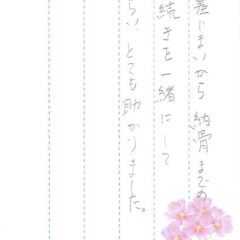 墓じまいから納骨までの
続きを一緒にして
らい、とても助かりました。